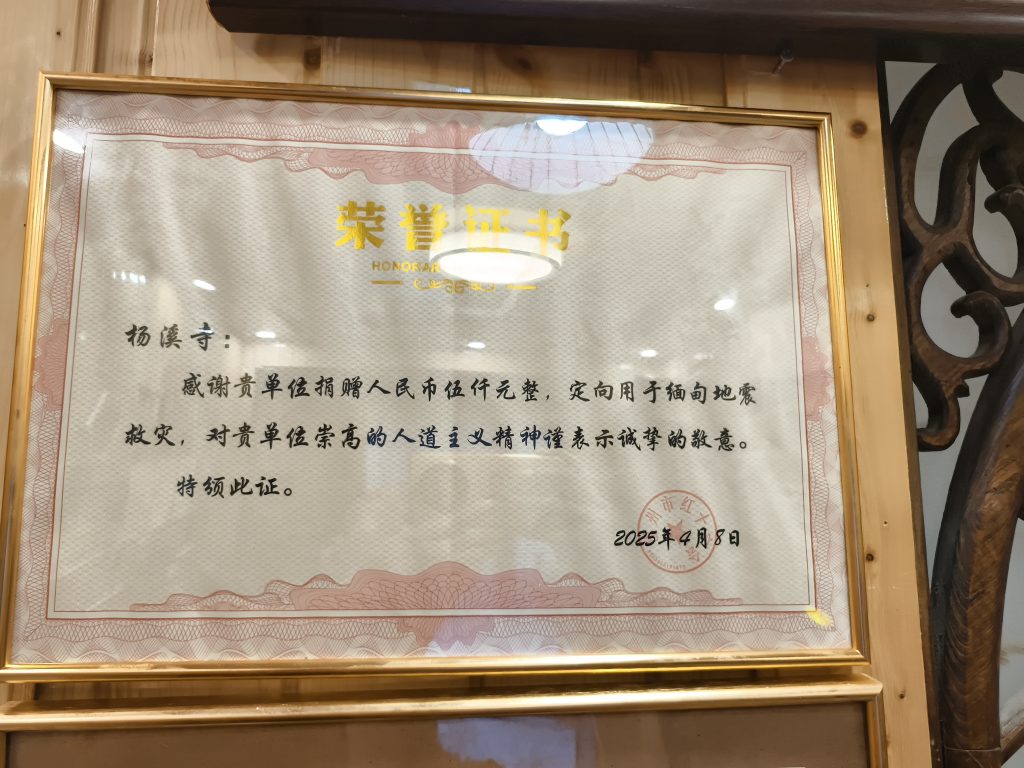 荣誉证书
HONORAR
杨溪寺：
感谢贵单位捐赠人民币伍仟元整，定向用于缅甸地震
救灾，对贵单位崇高的人道主义精神谨表示诚挚的敬意。
特颁此证。
州市红十
会
2025年4月8日